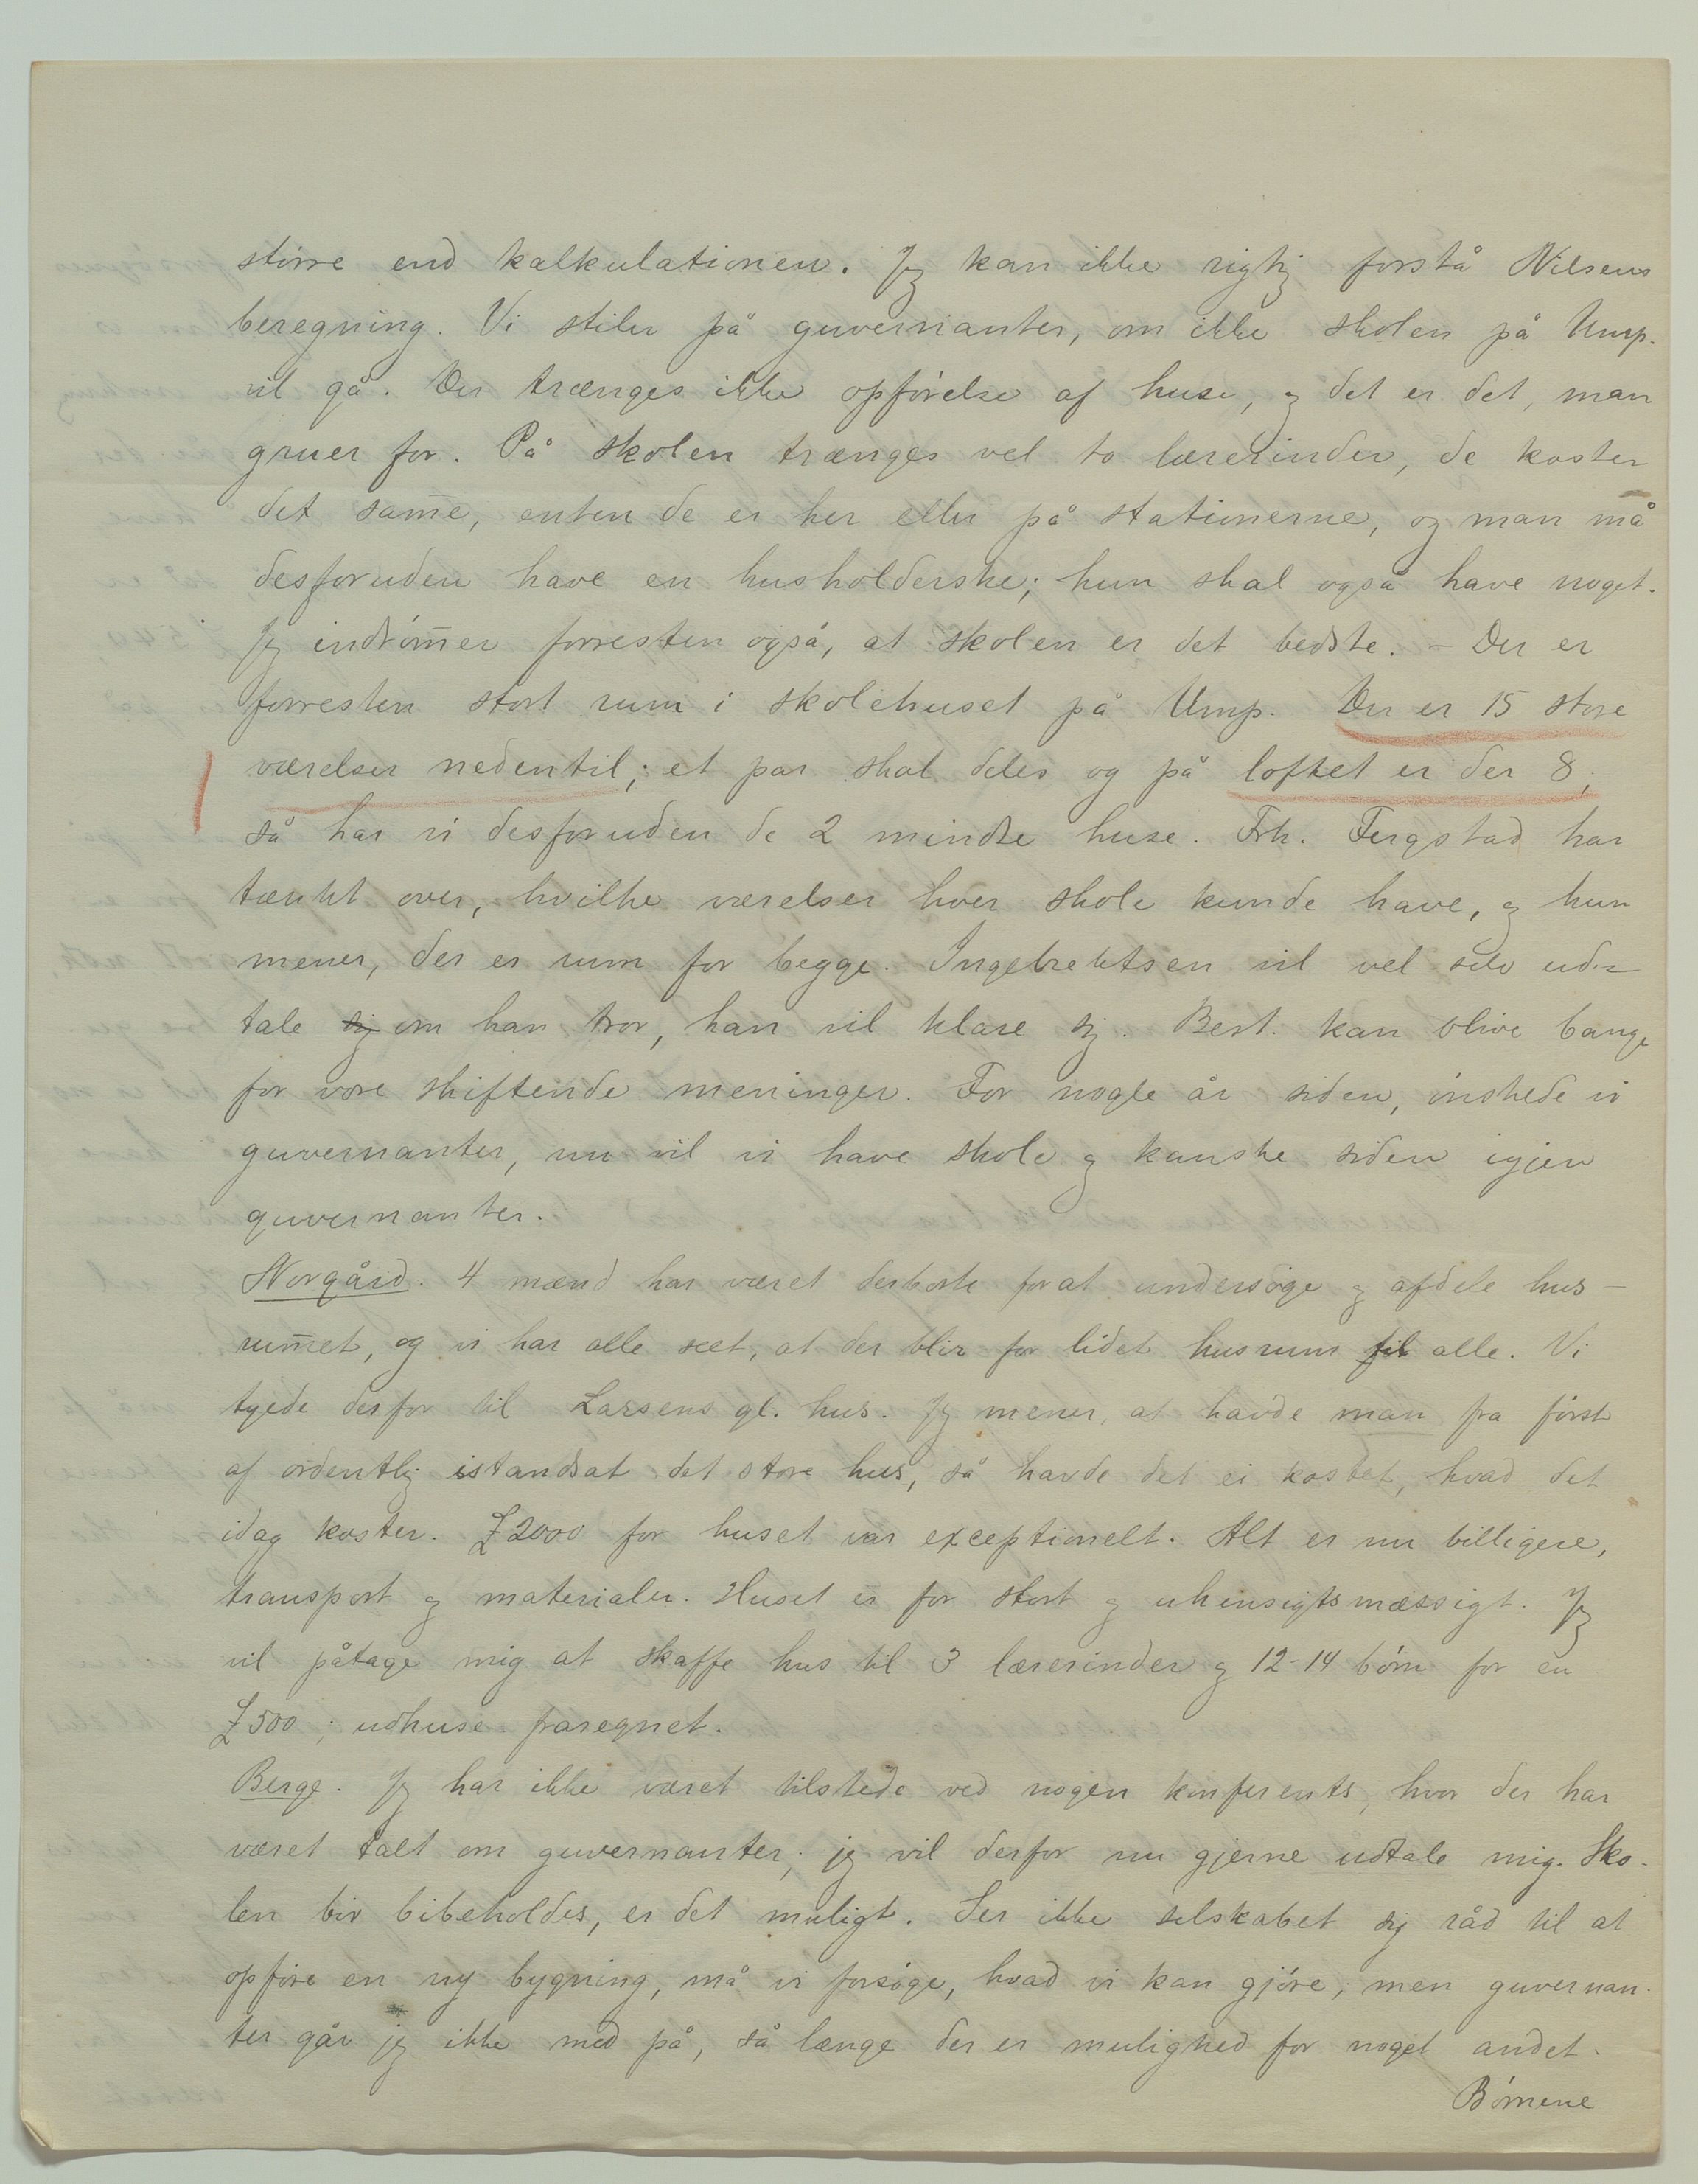 større end kalkulationen. Jeg kan ikke rigtig forstå Nilsens
beregning. Vi stiler på guvernanter, om ikke skolen på Ump.
vil gå. Der trænges ikke opførelse af huse, og det er det, man
gruer for. På skolen trænges vel to lærerinder, de koster
det sam̄e, enten de er her eller på stationerne, og man må
desforuden have en husholderske; hun skal også have noget.
Jeg indrøm̄er forresten også, at skolen er det bedste. – Der er
forresten stort rum i skolehuset på Ump. Der er 15 store
værelser nedentil; et par skal deles og på loftet er der 8,
så har vi desforuden de 2 mindre huse. Frk. Fergstad har
tænkt over, hvilke værelser hver skole kunde have, og hun
mener, der er rum for begge. Ingebrektsen vil vel selv ud-
tale sig om han tror, han vil klare sig. Best. kan blive bange
for vore skiftende meninger. For nogle år siden, ønskede vi
guvernanter, nu vil vi have skole og kanske siden igjen
guvernanter.
Norgård. 4 mænd har været derborte for at undersøge og afdele hus-
rum̄et, og vi har alle seet, at der blir for lidet husrum til alle. Vi
tyede derfor til Larsens gl. hus. Jeg mener, at havde man fra først
af ordentlig istandsat det store hus, så havde det ei kostet, hvad det
idag koster. £2000 for huset var exceptionelt. Alt er nu billigere,
transport og materialer. Huset er for stort og uhensigtsmæssigt. Jeg
vil påtage mig at skaffe hus til 3 lærerinder og 12-14 børn for en
£500; udhuse fraregnet.
Berge. Jeg har ikke været tilstede ved nogen konferents, hvor der har
været talt om guvernanter; jeg vil derfor nu gjerne udtale mig. Sko-
len bør bibeholdes, er det muligt. Ser ikke selskabet sig råd til at
opføre en ny bygning, må vi forsøge, hvad vi kan gjøre; men guvernan-
ter går jeg ikke med på, så længe der er mulighed for noget andet.
Børnene